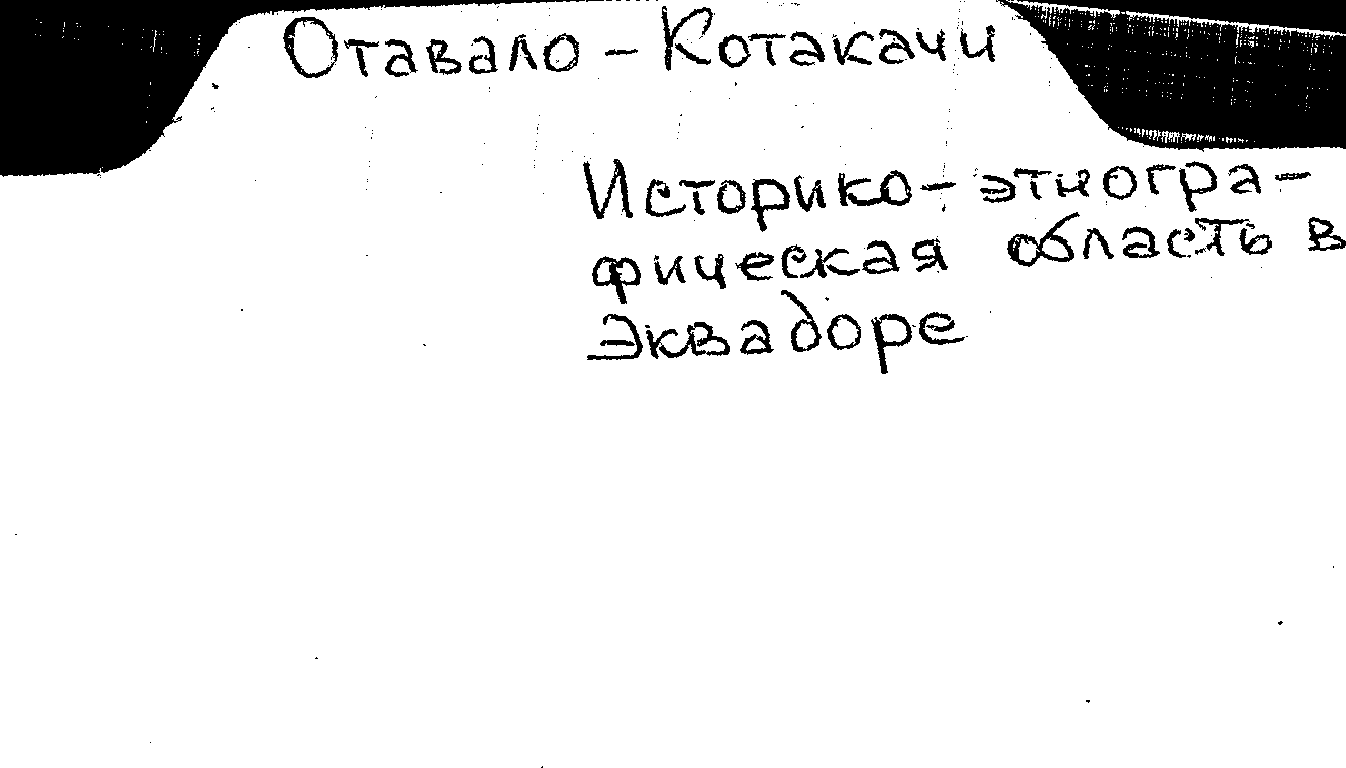 Отавало - Котакачи
Историко-этногра-
фическая область в
Эквадоре